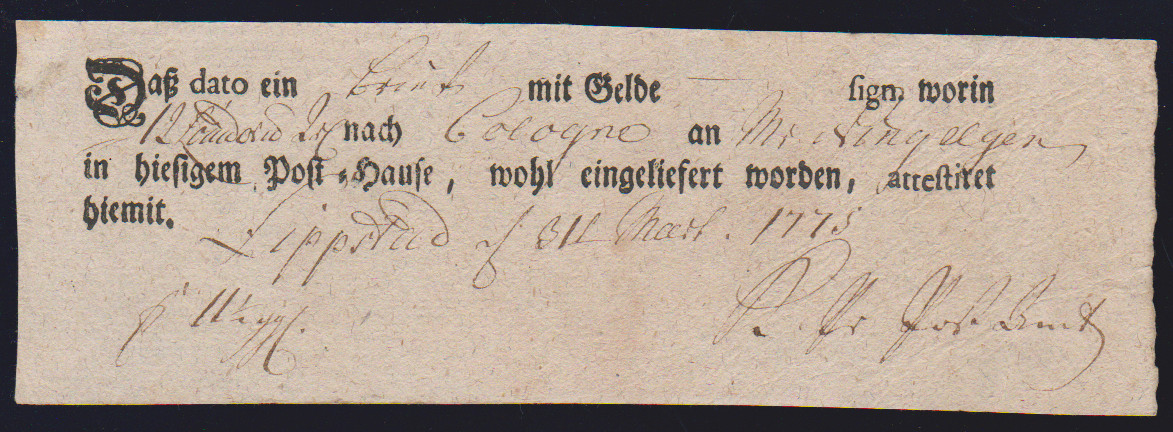 Daß dato ein Brief mit Gelde sign worin
12 nach Cologne an Mr
in hiesigem Post-Hause, wohl eingeliefert worden, attestiret
hiemit.
Lippstad d 31t Mart. 1775
K. Pr Post Amt